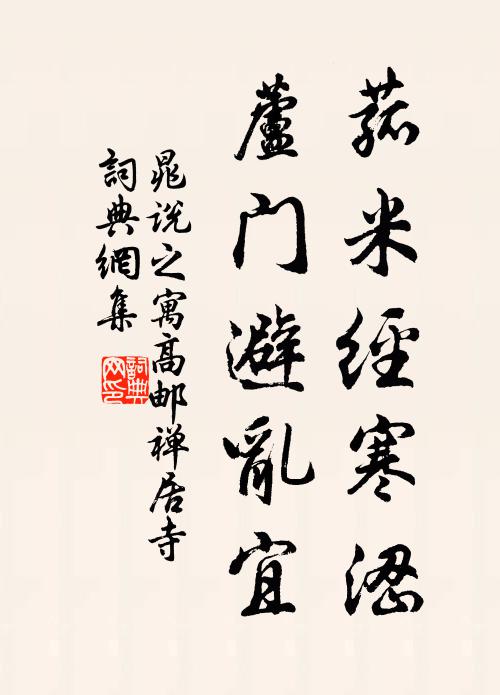 菰米經寒涩
蘆门避亂宜
晁说之寓高邮禅居寺
詞典網集
詞典网印